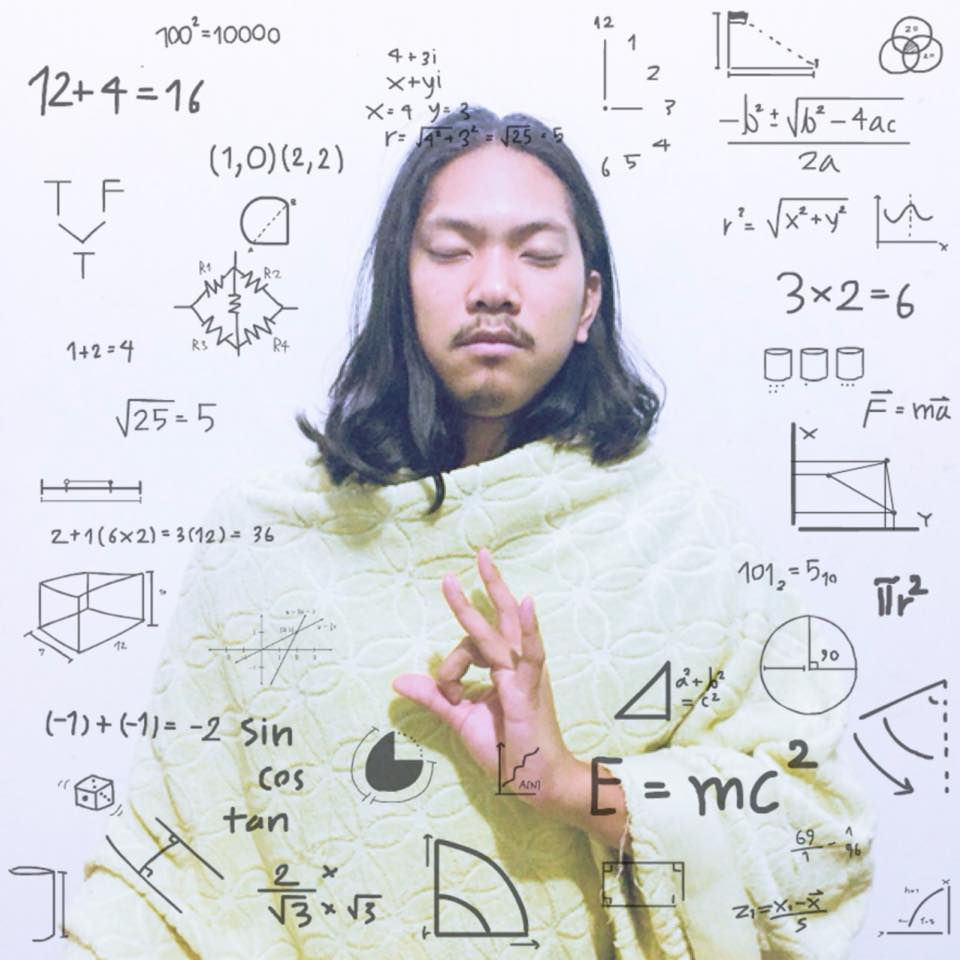 100² = 10000
12 + 4 = 16
4 + 3i
x + yi
x = 4 y = 3
r = √4² + 3² = √25 = 5
12
1
2
3
4
5
6
-b² ± √b² - 4ac
2a
(1,0)(2,2)
T F
T
B
A
r² = √x² + y²
x
R1 R2
R3 R4
3 × 2 = 6
1 + 2 = 4
√25 = 5
F⃗ = ma⃗
X
Y
2 + 1(6 × 2) = 3(12) = 36
101₂ = 5₁₀
πr²
12
90
a² + b²
= c²
(-1) + (-1) = -2
sin
cos
tan
A(N)
E = mc²
2 ×
√3 × √3
69
1
-
1
96
z₁ = x₁ - x⃗
s
x